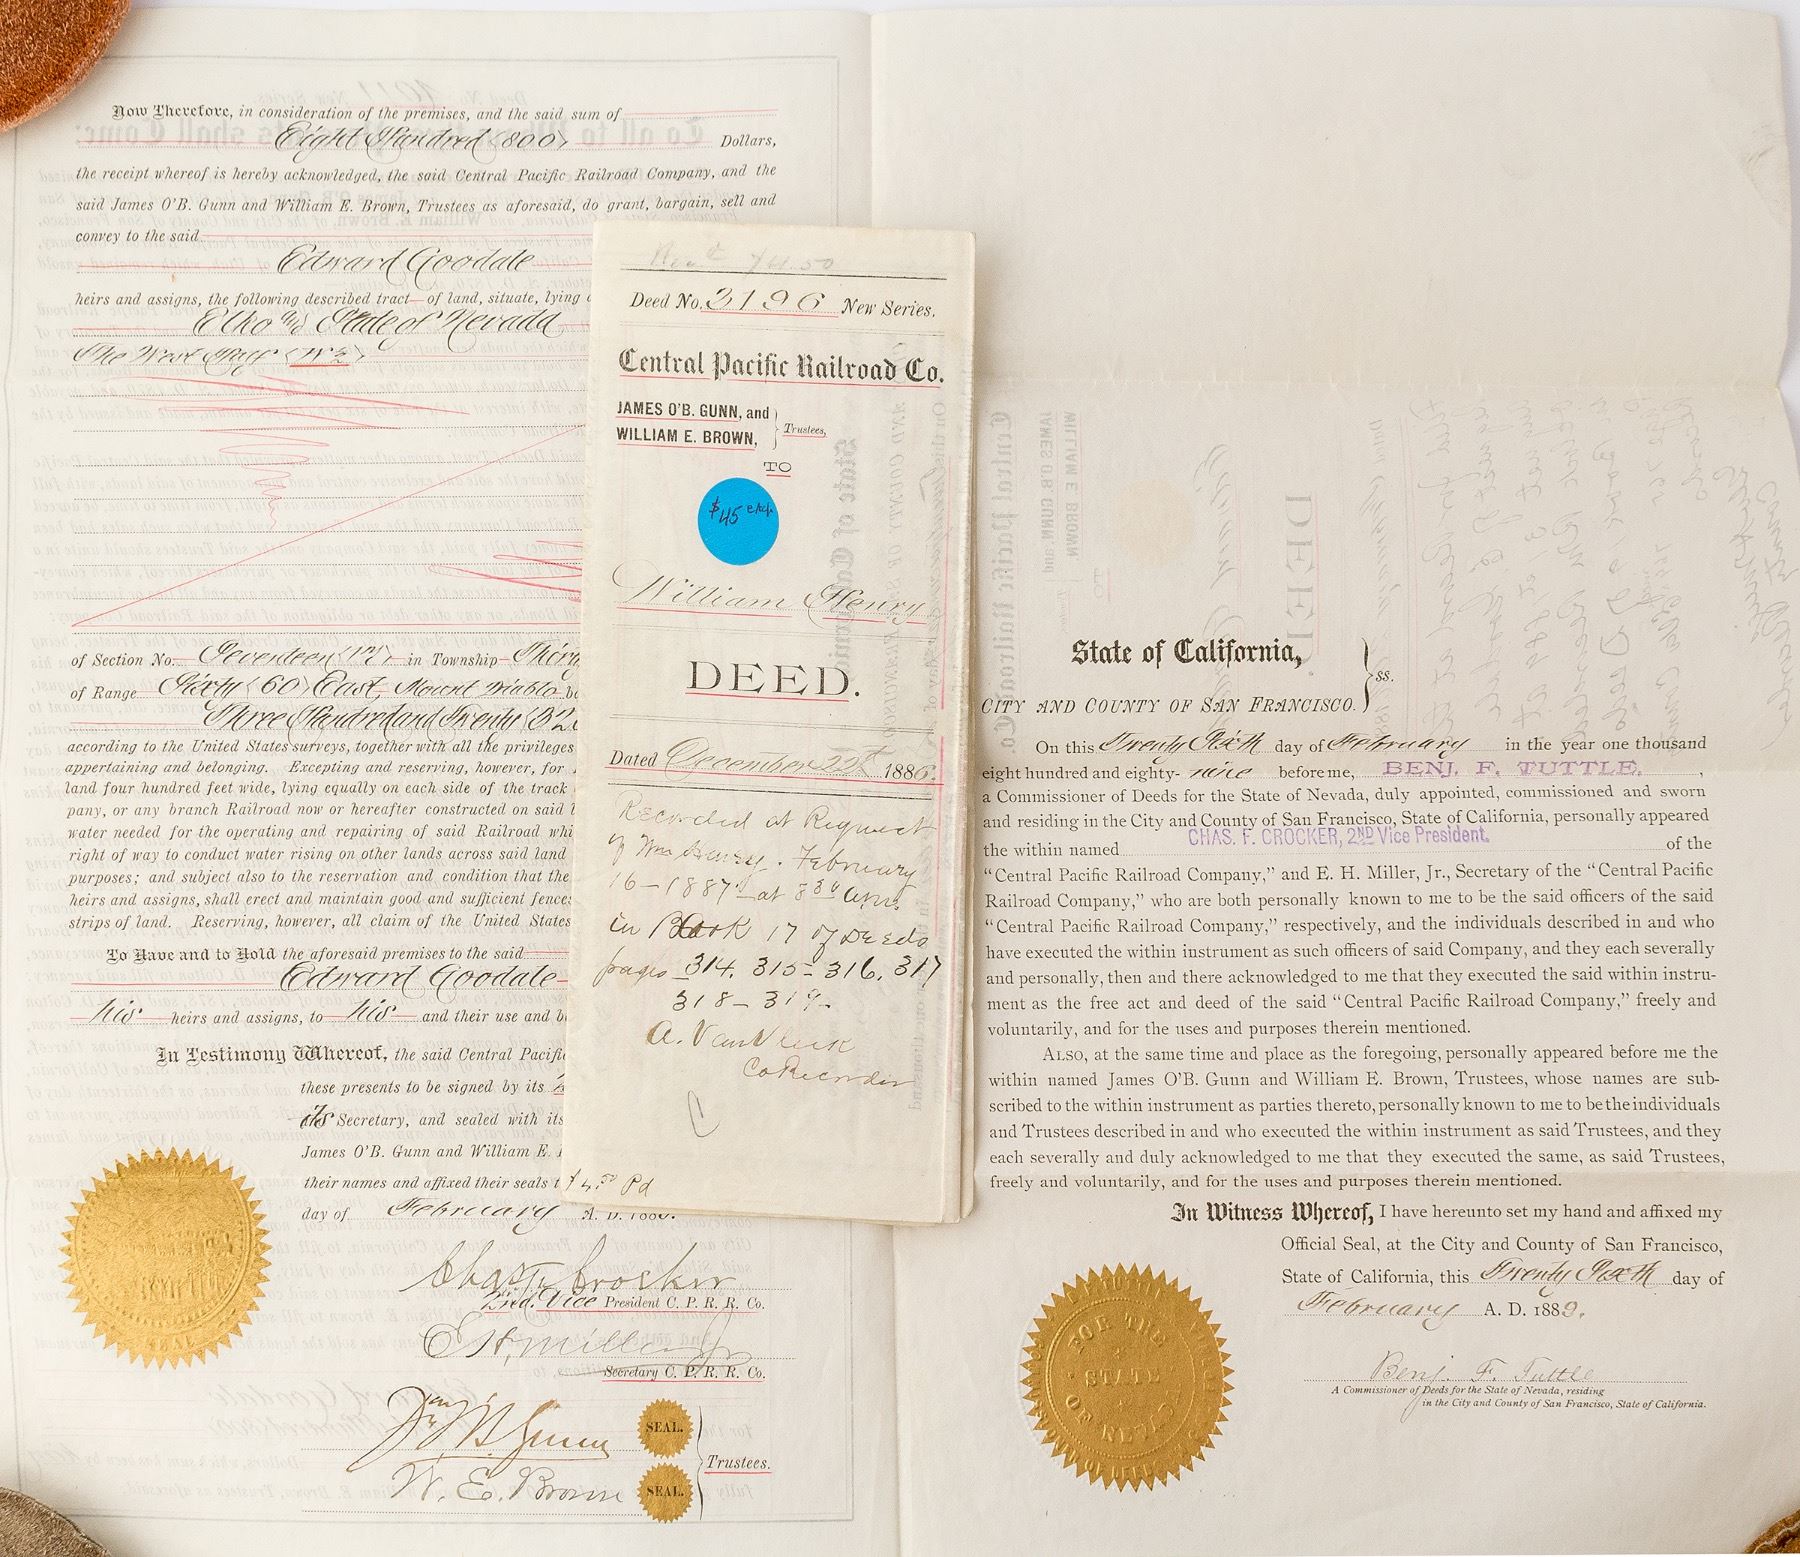 Now Therefore, in consideration of the premises, and the said sum of
Eight Hundred (800) Dollars,
the receipt whereof is hereby acknowledged, the said Central Pacific Railroad Company, and the
said James O'B. Gunn and William E. Brown, Trustees as aforesaid, do grant, bargain, sell and
convey to the said
Edward Goodale
heirs and assigns, the following described tract of land, situate, lying
Elko and State of Nevada
The West Half (W½)
of Section No. Seventeen (17) in Township
of Range Sixty (60) East, Mount Diablo
Three Hundred and Twenty (320
according to the United States surveys, together with all the privileges
appertaining and belonging. Excepting and reserving, however, for
land four hundred feet wide, lying equally on each side of the track
pany, or any branch Railroad now or hereafter constructed on said
water needed for the operating and repairing of said Railroad
right of way to conduct water rising on other lands across said land
purposes; and subject also to the reservation and condition that the
heirs and assigns, shall erect and maintain good and sufficient fences
strips of land. Reserving, however, all claim of the United States
To Have and to Hold the aforesaid premises to the said
Edward Goodale
his heirs and assigns, to his and their use and
In Testimony Whereof, the said Central Pacific
these presents to be signed by its
its Secretary, and sealed with its
James O'B. Gunn and William E.
their names and affixed their seals
day of February A. D. 188
Chas F. Crocker
2nd. Vice President C. P. R. R. Co.
E H. Miller Jr
Secretary C. P. R. R. Co.
Jas O'B Gunn SEAL.
Trustees.
W. E. Brown SEAL.
SEAL
74.50
Deed No. 3196 New Series.
Central Pacific Railroad Co.
JAMES O'B. GUNN, and
WILLIAM E. BROWN,
Trustees,
TO
$45 each
William Henry
DEED.
Dated December 22d 1886.
Recorded at Request
of Wm Henry. February
16-1887 at 8 30 a.m.
in Book 17 of Deeds
pages 314, 315-316, 317
318-319-
A. Van Vleck
Co Recorder
Pd
State of California,
CITY AND COUNTY OF SAN FRANCISCO.
ss.
On this Twenty Sixth day of February in the year one thousand
eight hundred and eighty-nine before me, BENJ. F. TUTTLE,
a Commissioner of Deeds for the State of Nevada, duly appointed, commissioned and sworn
and residing in the City and County of San Francisco, State of California, personally appeared
CHAS. F. CROCKER, 2ND Vice President.
the within named of the
“Central Pacific Railroad Company,” and E. H. Miller, Jr., Secretary of the “Central Pacific
Railroad Company,” who are both personally known to me to be the said officers of the said
“Central Pacific Railroad Company,” respectively, and the individuals described in and who
have executed the within instrument as such officers of said Company, and they each severally
and personally, then and there acknowledged to me that they executed the said within instru-
ment as the free act and deed of the said “Central Pacific Railroad Company,” freely and
voluntarily, and for the uses and purposes therein mentioned.
ALSO, at the same time and place as the foregoing, personally appeared before me the
within named James O'B. Gunn and William E. Brown, Trustees, whose names are sub-
scribed to the within instrument as parties thereto, personally known to me to be the individuals
and Trustees described in and who executed the within instrument as said Trustees, and they
each severally and duly acknowledged to me that they executed the same, as said Trustees,
freely and voluntarily, and for the uses and purposes therein mentioned.
In Witness Whereof, I have hereunto set my hand and affixed my
Official Seal, at the City and County of San Francisco,
State of California, this Twenty Sixth day of
February A. D. 1889.
Benj. F. Tuttle
A Commissioner of Deeds for the State of Nevada, residing
in the City and County of San Francisco, State of California.
FOR THE
STATE
OF NEVADA